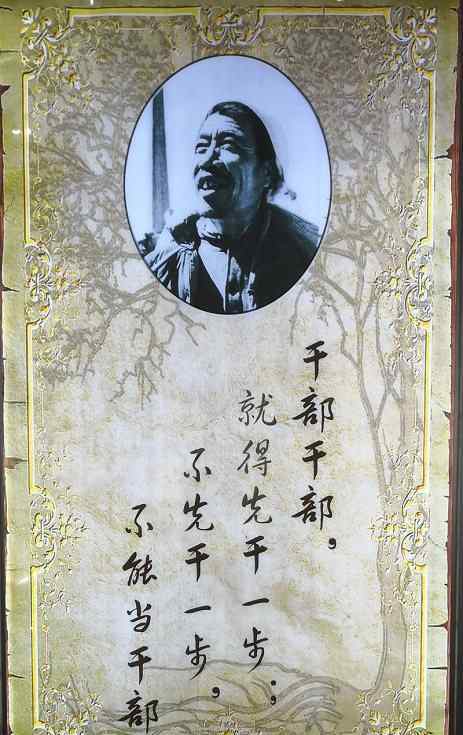 干部干部，
就得先干一步；
不先干一步，
不能当干部